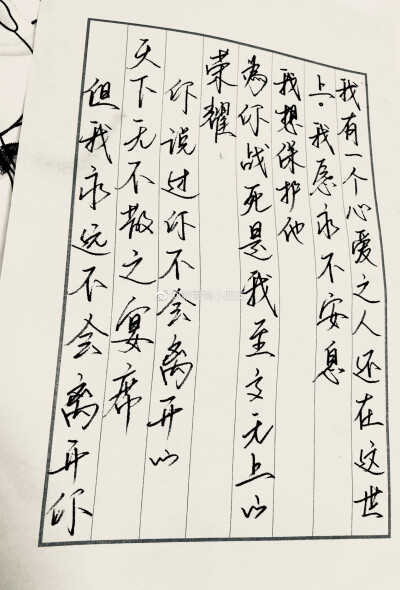 我有一个心爱之人还在这世
上。我愿永不安息
我想保护他
為你战死是我至高无上的
荣耀
你说过你不会离开的
天下无不散之宴席
但我永远不会离开你